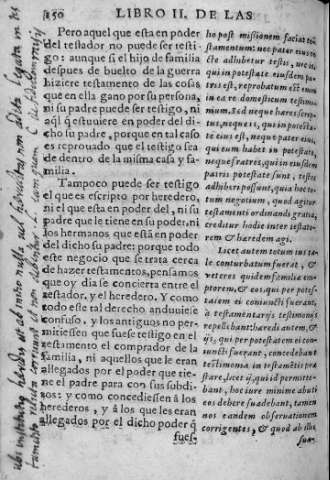 250 LIBRO II. DE LAS
Pero aquel que esta en poder
del testador no puede ser testi-
go: aunque si el hijo de familia
despues de buelto de la guerra
hiziere testamento de las cosas
que en ella gano por su persona,
ni su padre puede ser testigo, ni
aql q̃ estuuiere en poder del di-
cho su padre, porque en tal caso
es reprouado que el testigo sea
de dentro de la misma casa y fa-
milia.
Tampoco puede ser testigo
el que es escripto por heredero,
ni el que esta en poder del, ni su
padre que le tiene en su poder, ni
los hermanos que estã en poder
del dicho su padre: porque todo
este negocio que se trata cerca
de hazer testamentos, pensamos
que oy dia se concierta entre el
testador, y el heredero. Y como
todo este tal derecho anduuiesse
confuso, y los antiguos no per-
mitiessen que fuesse testigo en el
testamento el comprador de la
familia, ni aquellos que le eran
allegados por el poder que tie-
ne el padre para con sus subdi-
tos: y como concediessen â los
herederos, y â los que les eran
allegados por el dicho poder q̃
fues-
ho post missionem faciat te-
stamentum: nec pater eius re-
cte adhibetur testis, nec is,
qui in potestate eiusdem pa-
tris est, reprobatum est enim
in ea re domesticum testimo-
nium. Sed neque hæres scrip-
tus, neque is, qui in potesta-
te eius est, neque pater eius,
qui eum habet in potestate,
neque fratres, qui in eiusdem
patris potestate sunt, testes
adhiberi possunt, quia hoc to-
tum negotium, quod agitur
testamenti ordinandi gratia,
creditur hodie inter testato-
rem, & hæredem agi.
Licet autem totum ius ta-
le conturbatum fuerat, &
veteres quidem familiæ em-
ptorem, & eos, qui per potes-
tatem ei coniuncti fuerant,
à testamentarijs testimonijs
repellebant: hæredi autem, &
ijs, qui per potestatem ei con-
iuncti fuerant, concedebant
testimonia in testamētis præ-
stare, licet ij, qui id permitte-
bant, hoc iure minime abuti
eos debere suadebant, tamen
nos eandem obseruationem
corrigentes, & quod ab illis,
sua-